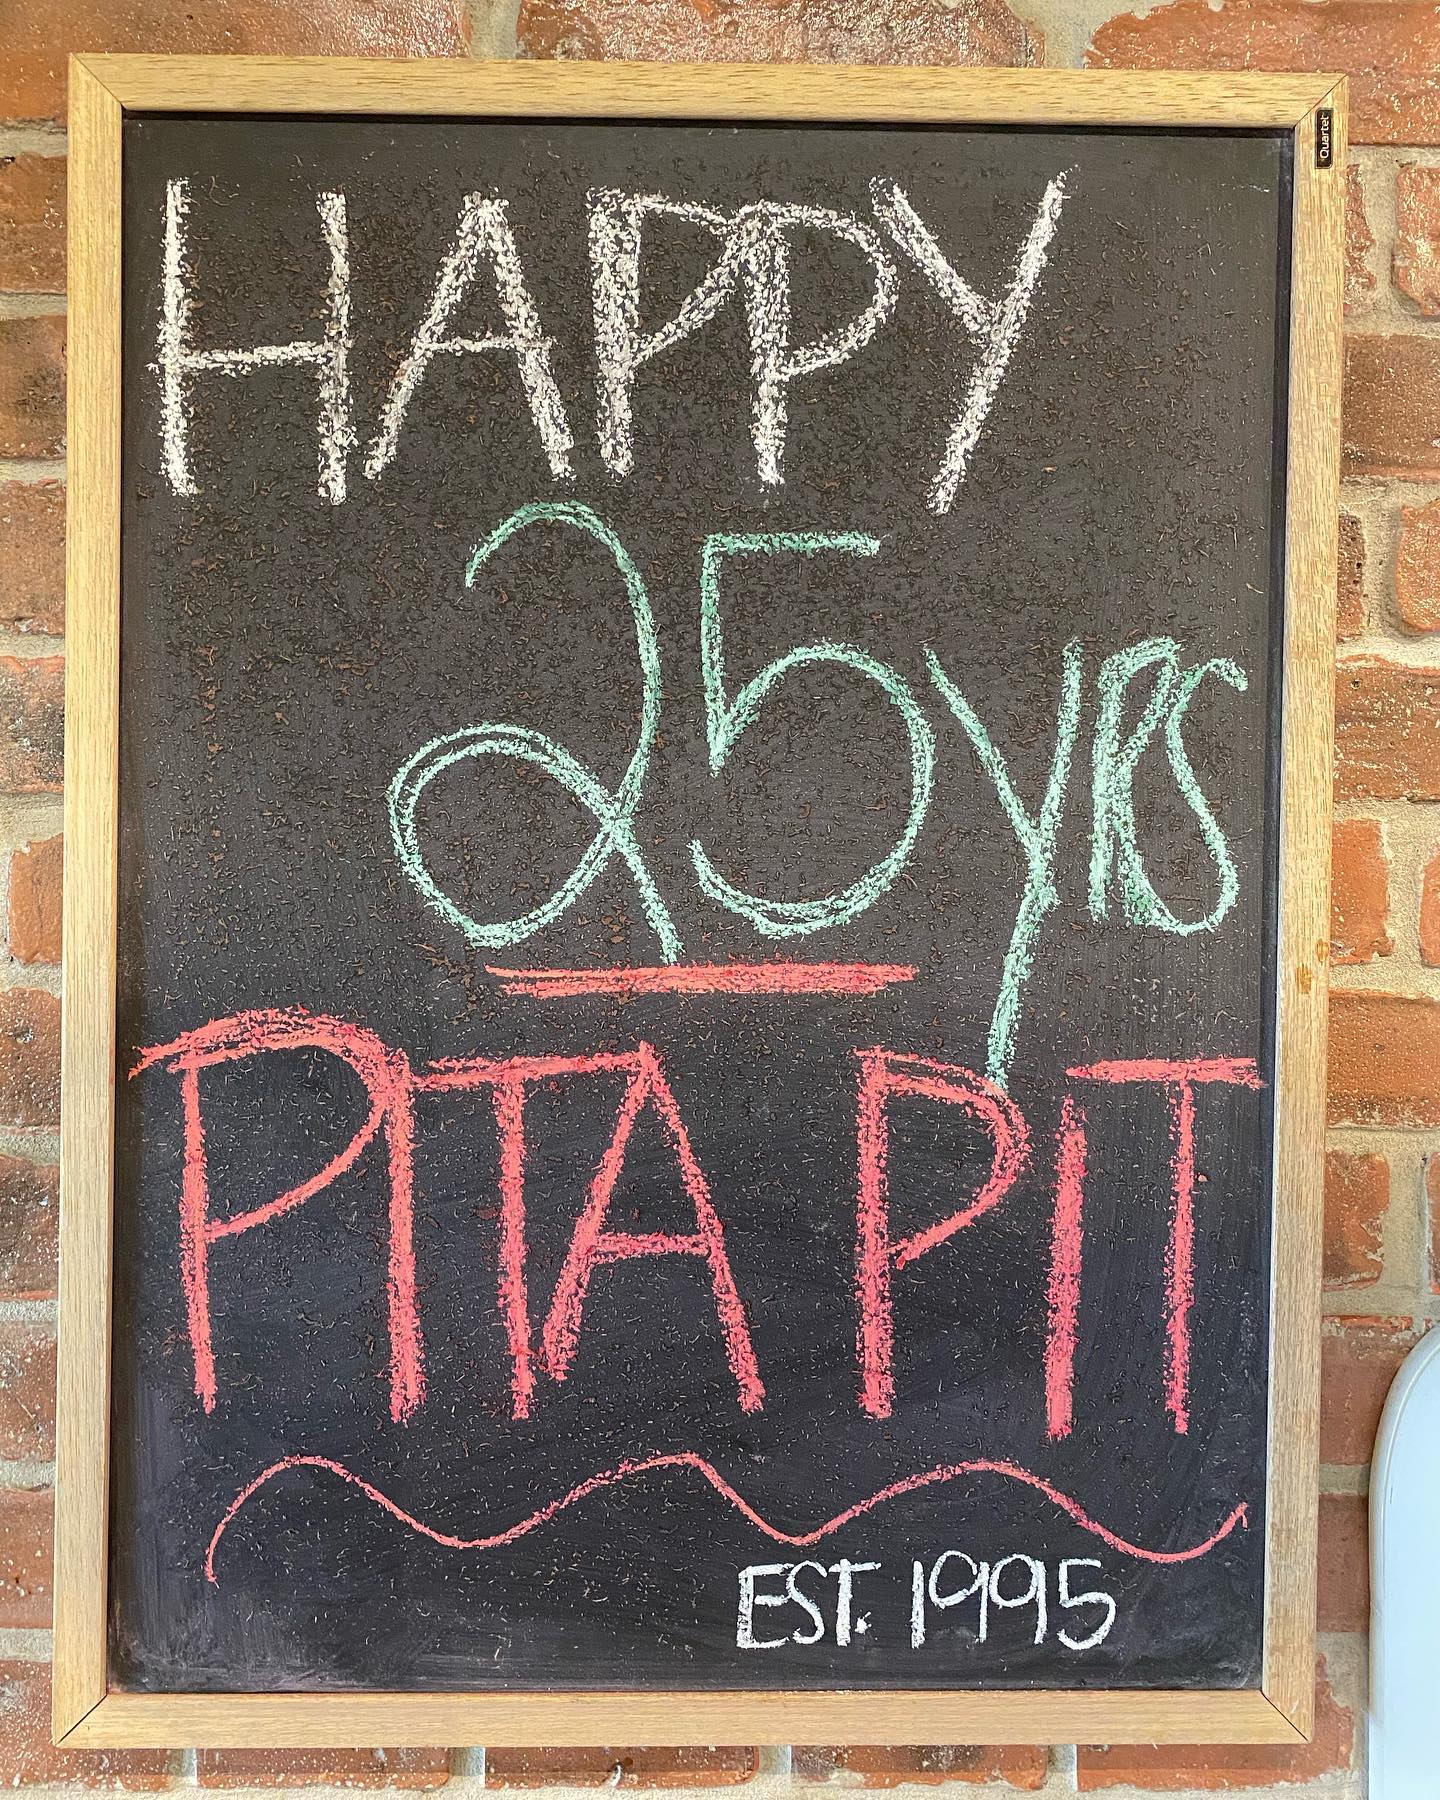 Quartet
HAPPY
25 yRS
PITA PIT
EST. 1995